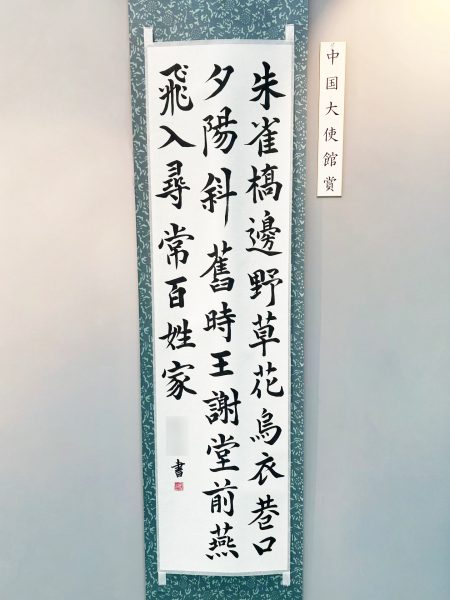 中国大使館賞
朱雀橋邊野草花烏衣巷口
夕陽斜舊時王謝堂前燕
飛入尋常百姓家
書